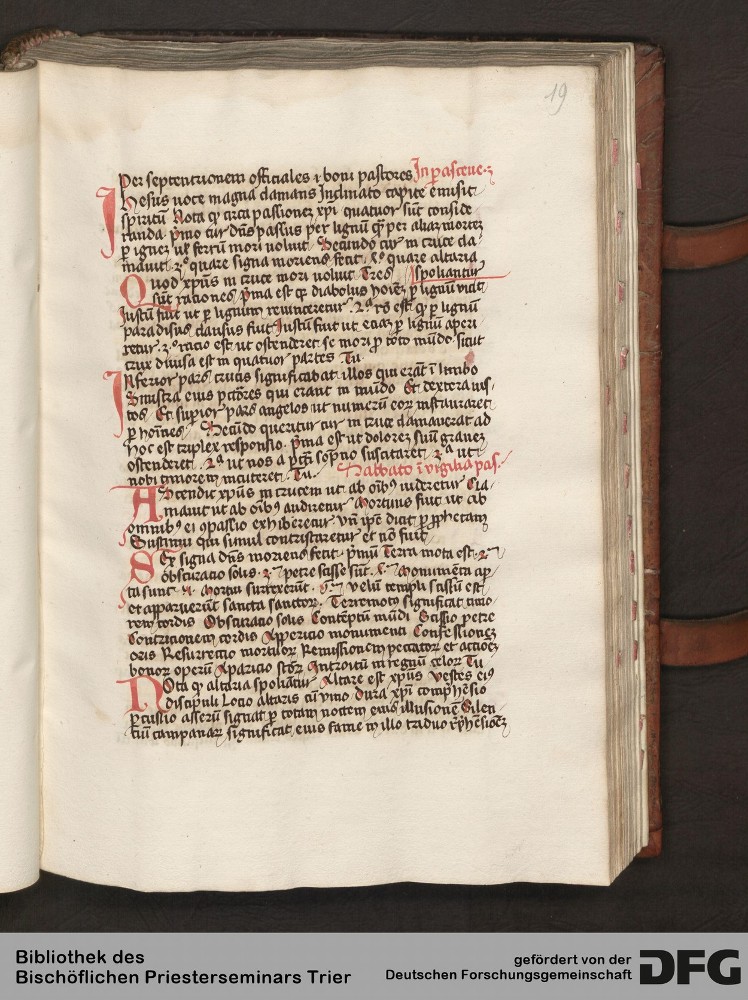 19
Per septentrionem officiales ⁊ boni pastores In pasceue
Ihesus uoce magna clamans Inclinato capite emisit
spiritū Nota qͥ circa passionez xpi quatuor sūt conside
randa pͥmo cur dn̄s passus per lignū qͣ per aliaz mortez
p̱ ignez ul̓ ferrū mori uoluit Secundo cur in cruce cla-
mauit 3ͦ quare signa moriens fecit 4ͦ quare altaria
Quod xp̄us in cruce mori uoluit Tres spoliantur
sūt rationes pͥma est qͥ diabolus hoīez p̱ lignū uicit
Justū fuit ut p̱ lignum reuinceretur 2ᵃ rō est qͥ p̱ lignū
paradisus clausus fuit Justū fuit ut eciaz p̱ lignū aperi
retur 3ᵃ racio est ut ostenderet se mori p̱ toto mūdo sicut
crux diuisa est in quatuor partes Tu
Inferior pars crucis significabat illos qui erāt ī limbo
Sinistra eius pctōres qui erant in mūdo Et dextera ius-
tos Et supior pars angelos ut numerū eorz instauraret
p̱ hoīnes Secūdo queritur cur in cruce clamauerat ad
hoc est triplex responsio pͥma est ut dolorez suū grauez
ostenderet 2ᵃ ut nos a pctī sopno suscitaret 3ᵃ ut
nobī timorem incuteret Tu Sabbato ī vigilia pas
Ascendit xp̄us in crucem ut ab oībꝰ uideretur Cla-
mauit ut ab oībꝰ audiretur Mortuus fuit ut ab
omnibꝰ ei 9passio exhiberetur Vn̄ ip̄e dicit p̱ pphetam
Sustinui qui simul contristaretur et nō fuit
Sex signa dn̄s moriens fecit pͥmū Terra mota est 2ᵐ
obscuratio solis 3ᵐ petre scisse sūt 4ᵐ Monumēta ap̱
ta sunt 5 Mortui surrexerūt 6ᵐ Velū templi scissū est
et apparuerūt sancta sanctorz Terremotꝰ significat timo
rem cordis Obscuratio solis Contēptū mūdi Scissio petre
Contricionem cordis Appericio monumenti Confessionez
oris Resurrectio mortuorz Remissionem peccatorz et actiōez
bonorz operū Aparicio stōrz Introitū in regnū celorz Tu
Nota qͥ altaria spoliātur Altare est xp̄us Vestes eiꝰ
discipuli Locio altaris cū vino dura xpī comphēsio
p̱cussio asserū signat p̱ totam noctem eius illusionē Silen
tiū campanarz significat eius fame in illo triduo rp̄hēsionez
Bibliothek des
Bischöflichen Priesterseminars Trier
gefördert von der
Deutschen Forschungsgemeinschaft
DFG